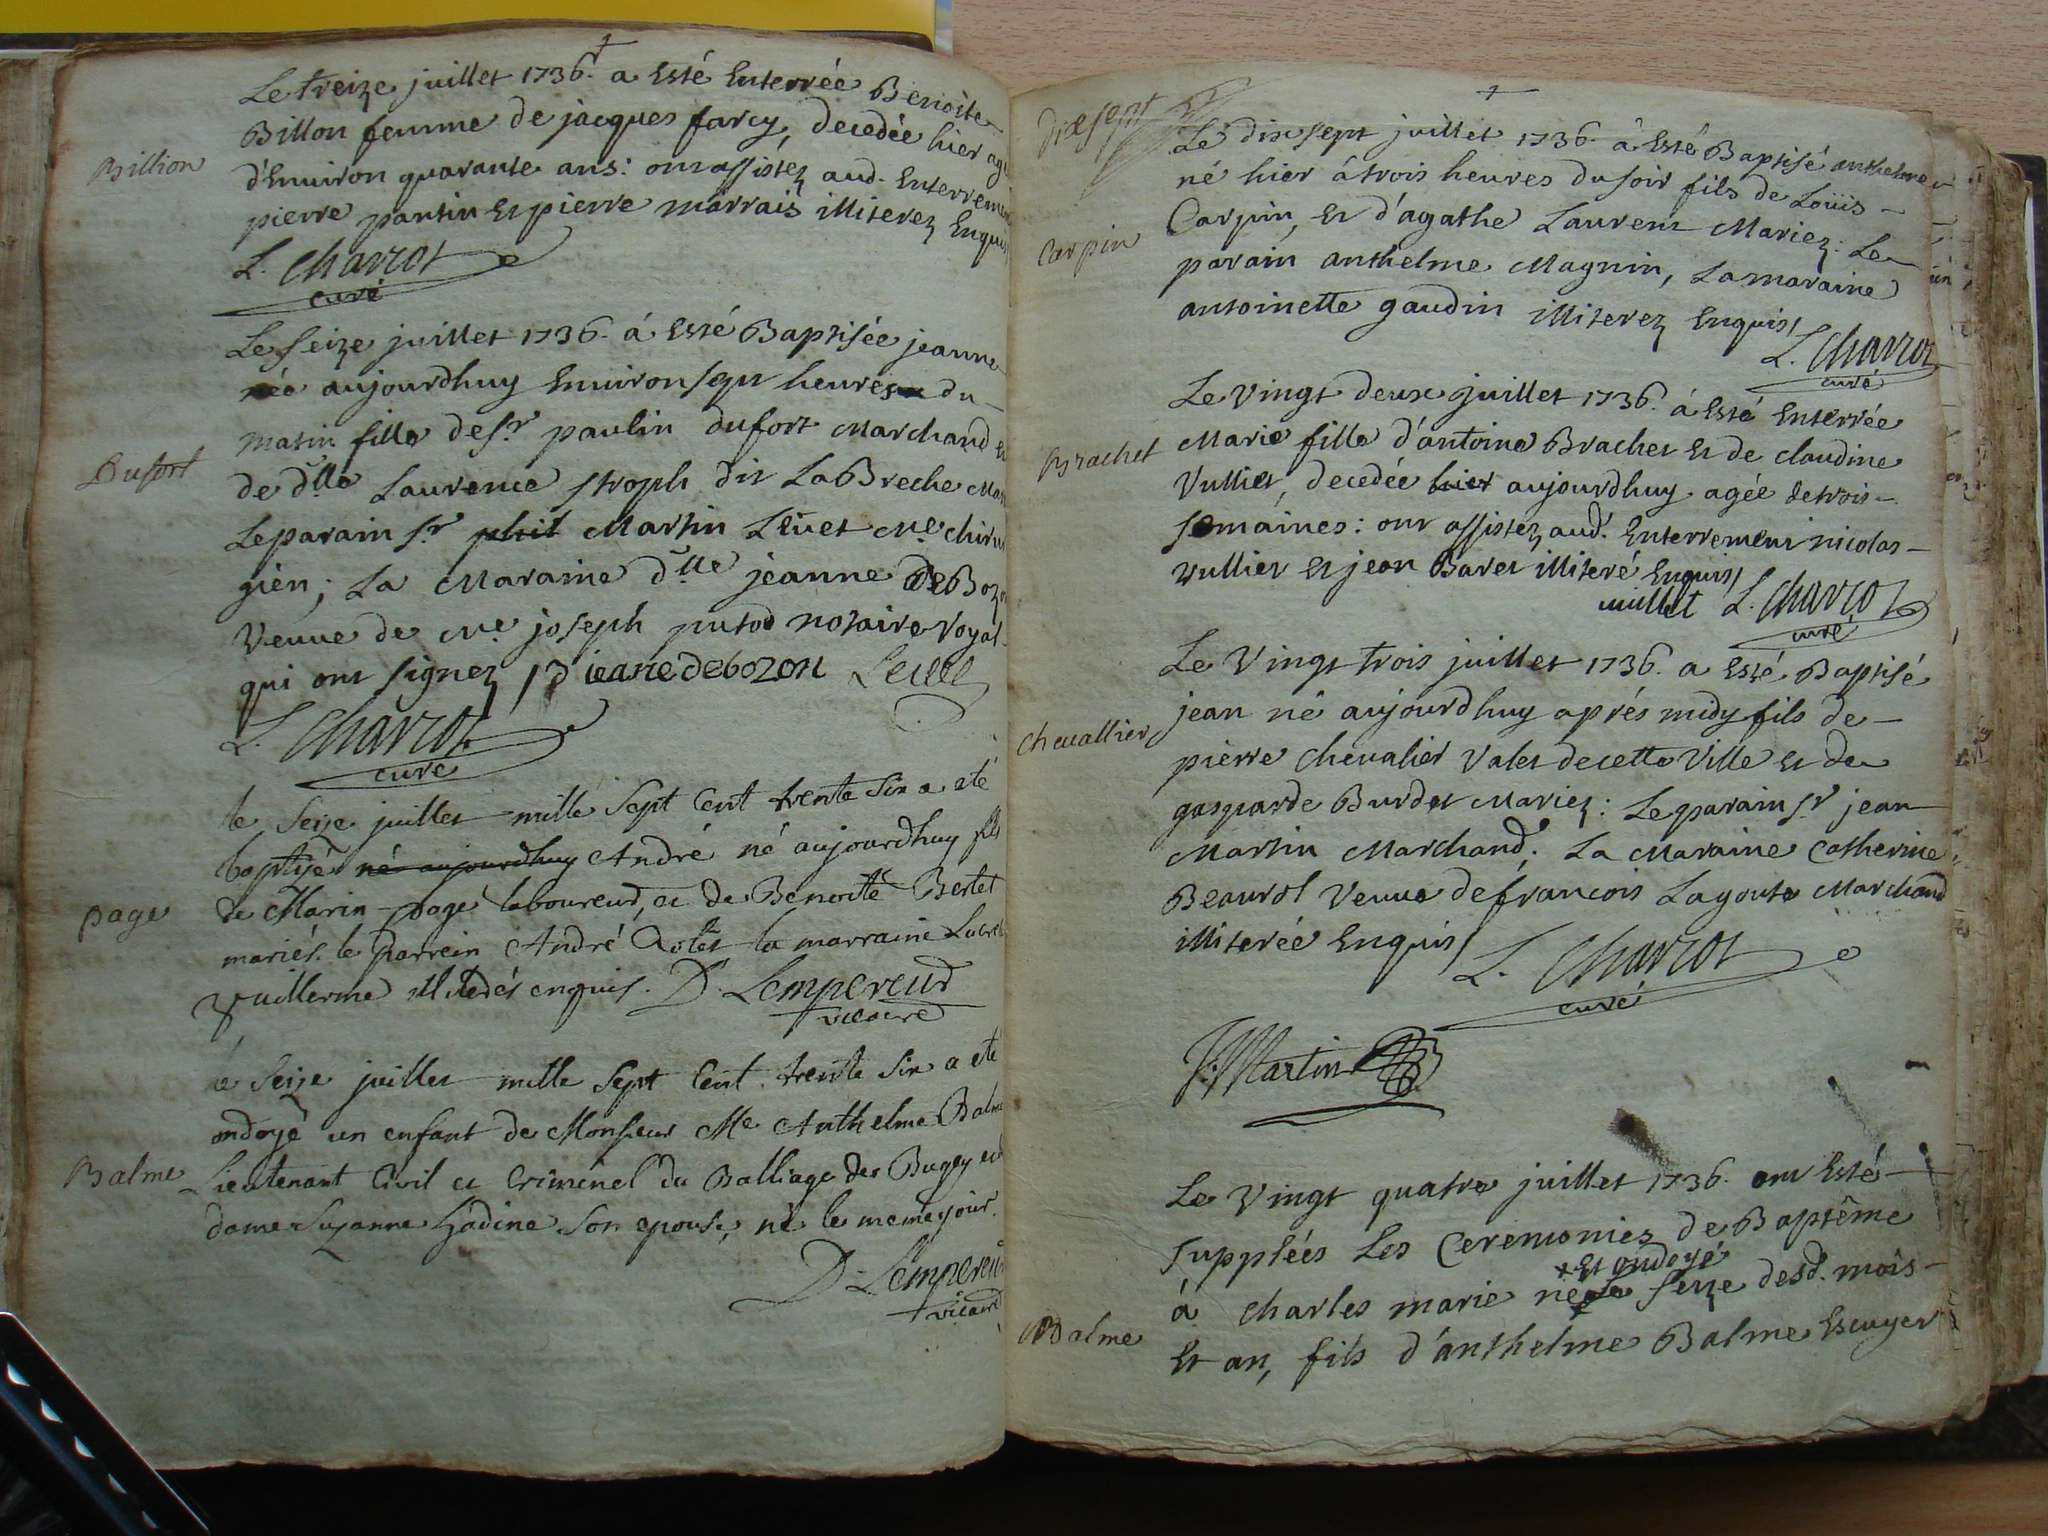 Le treize juillet 1736. a Esté Enterrée Benoite
Billon femme de jacques farcy, decedée hier agée
Billion
d'Environ quarante ans: ont assistez aud. Enterrement
pierre pantin Et pierre marrais illiterez Enquis
L. Charcot
curé
Le seize juillet 1736. á Esté Baptisée jeanne
née aujourdhuy Environ sept heures du
matin fille de sr. paulin dufort Marchand et
Dufort
de dlle Laurence stroph dit La Breche Mar
Le parain sr. phil Martin Livet Me. chirur
gien; La Maraine dlle jeanne De Bozon
Veuve de Me. joseph putod notaire Royal
qui ont signez jeane debozon
L. Charcot
curé
le Seize juillet mille Sept Cent trente Six a eté
baptisé né aujourdhuy André né aujourdhuy fils
page
de Marin page laboureur, et de Benoite Bertet
mariés. le parrein André la marraine
Vuillerme illiterés enquis. D. Lempereur
vicaire
le Seize juillet mille Sept Cent trente Six a eté
ondoyé un enfant de Monsieur Me Anthelme Balme
Balme
Lieutenant Civil et Criminel du Balliage de Bugey et de
dame Suzanne son epouse, né le meme jour.
D. Lempereur
vicaire
dixsept
Le dix sept juillet 1736. á Esté Baptisé anthelme
né hier á trois heures du soir fils de Loüis
Carpin
Carpin, Et d'agathe Laurent Mariez: Le
parain anthelme Magnin, La maraine
antoinette gaudin illiterez Enquis
L. Charcot
curé
Le Vingt deux juillet 1736. á Esté Enterrée
Brachet
Marie fille d'antoine Brachet Et de claudine
Vulliet, decedée hier aujourdhuy agée de trois
semaines: ont assistez aud. Enterrement nicolas
Vulliet Et jean Baret illiteré Enquis
millet L. Charcot
curé
Le Vingt trois juillet 1736. a Esté Baptisé
Chevallier
jean né aujourdhuy aprés midy fils de
pierre Chevalier Valet de cette Ville Et de
gasparde Burdet Mariez: Le parain sr. jean
Martin Marchand; La Maraine Catherine
Beaurol Veuve de francois Lagoute Marchand
illiterée Enquis
L. Charcot
curé
J. Martin
Le Vingt quatre juillet 1736. ont Esté
supplées Les Ceremonies de Baptême
Et ondoyé
á Charles marie né le seize desd. mois
Balme
Et an, fils d'anthelme Balme Escuyer